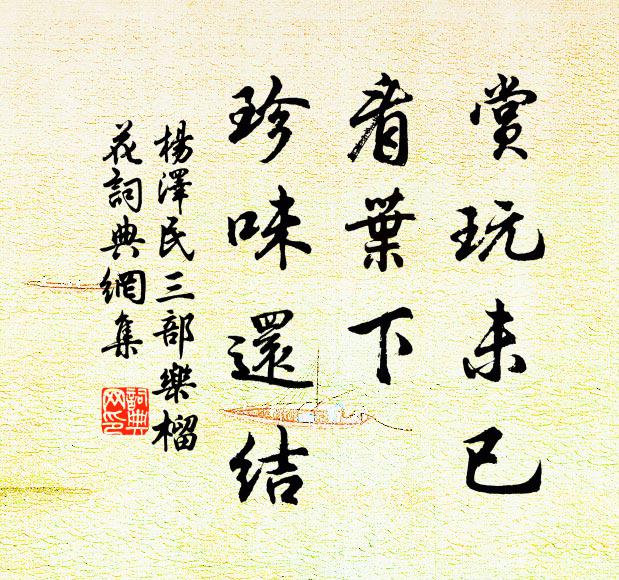 賞玩未已
看葉下
珍味還結
楊澤民三部樂榴
花詞典網集
詞典网印